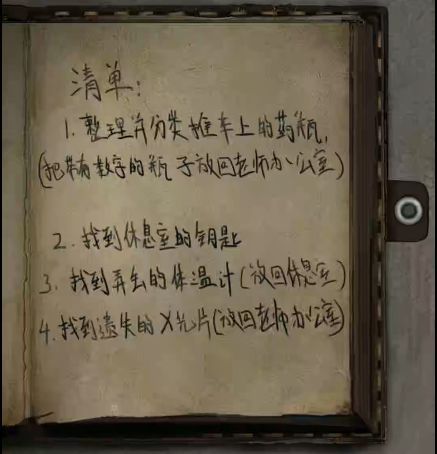 清单:
1. 整理并分类推车上的药瓶,
(把带有数字的瓶子放回老师办公室)
2. 找到休息室的钥匙
3. 找到弄丢的体温计(放回休息室)
4. 找到遗失的X光片(放回老师办公室)